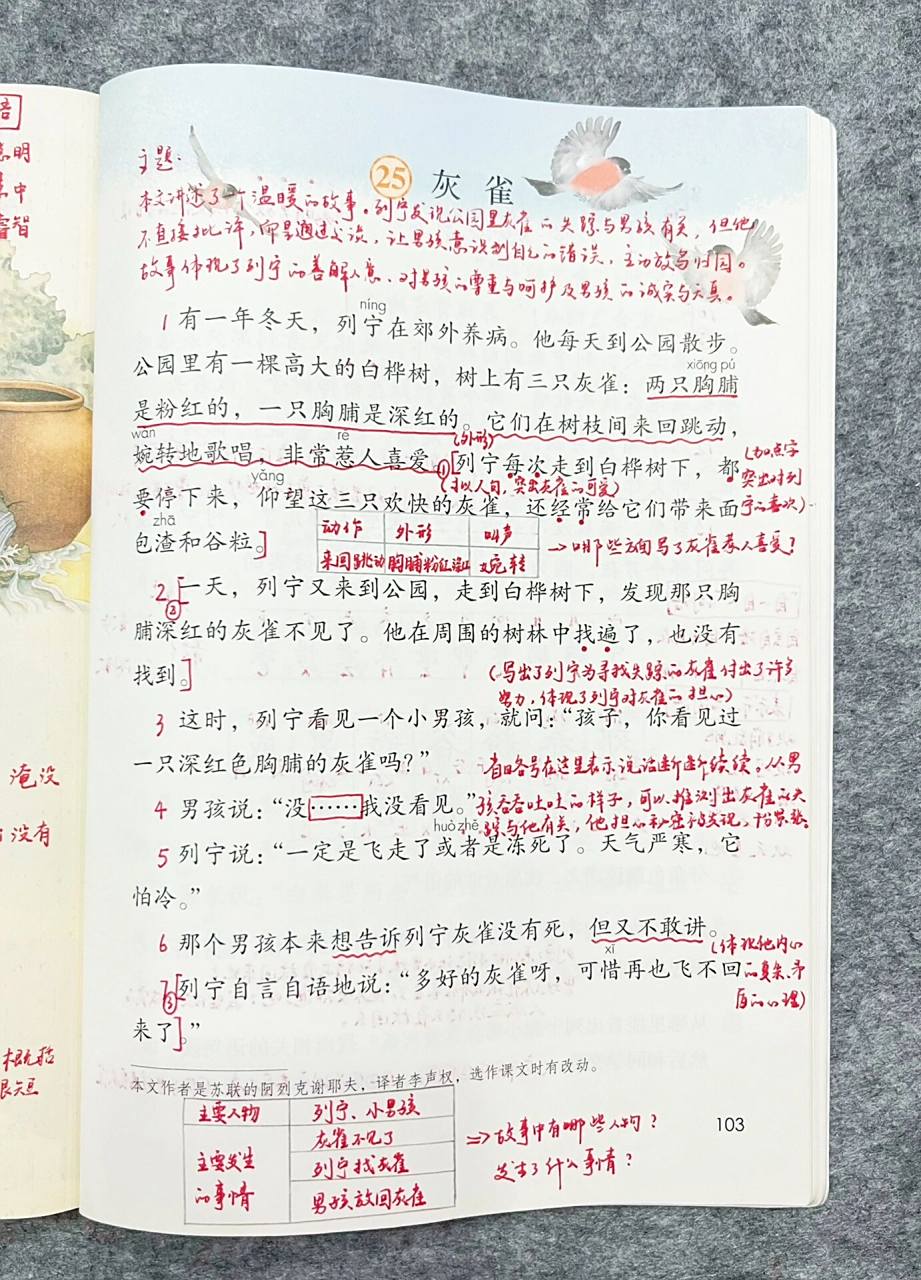 倍
思明
集中
睿智
淹没
有没有
主题:
25 灰雀
本文讲述了一个温暖的故事。列宁发现公园里灰雀的失踪与男孩有关，但他
不直接批评，而是通过交谈，让男孩意识到自己的错误，主动放鸟归园。
故事体现了列宁的善解人意、对男孩的尊重与呵护及男孩的诚实与天真。
níng
1 有一年冬天，列宁在郊外养病。他每天到公园散步。
xiōng pú
公园里有一棵高大的白桦树，树上有三只灰雀：两只胸脯
是粉红的，一只胸脯是深红的。它们在树枝间来回跳动，
wǎn rě (外形)
婉转地歌唱，非常惹人喜爱。①[列宁每次走到白桦树下，都
(加点字
突出对列
宁的喜欢)
yǎng (拟人句，突出灰雀的可爱)
要停下来，仰望这三只欢快的灰雀，还经常给它们带来面
zhā
包渣和谷粒。]
动作 外形 叫声
来回跳动 胸脯粉红深红 婉转
→哪些方面写了灰雀惹人喜爱?
2 ②[一天，列宁又来到公园，走到白桦树下，发现那只胸
脯深红的灰雀不见了。他在周围的树林中找遍了，也没有
找到。]
(写出了列宁为寻找失踪的灰雀付出了许多
努力，体现了列宁对灰雀的担心)
3 这时，列宁看见一个小男孩，就问：“孩子，你看见过
一只深红色胸脯的灰雀吗？”
省略号在这里表示说话断断续续，从男
4 男孩说：“没……我没看见。”
孩吞吞吐吐的样子，可以推测出灰雀的失
踪与他有关，他担心秘密被发现，十分紧张。
huò zhě
5 列宁说：“一定是飞走了或者是冻死了。天气严寒，它
怕冷。”
6 那个男孩本来想告诉列宁灰雀没有死，但又不敢讲。
(体现他内心
的复杂、矛
盾的心理)
xī
7 ③[列宁自言自语地说：“多好的灰雀呀，可惜再也飞不回
来了]。”
本文作者是苏联的阿列克谢耶夫，译者李声权，选作课文时有改动。
主要人物 列宁、小男孩
主要发生
的事情
灰雀不见了
列宁找灰雀
男孩放回灰雀
⇒故事中有哪些人物?
发生了什么事情?
103